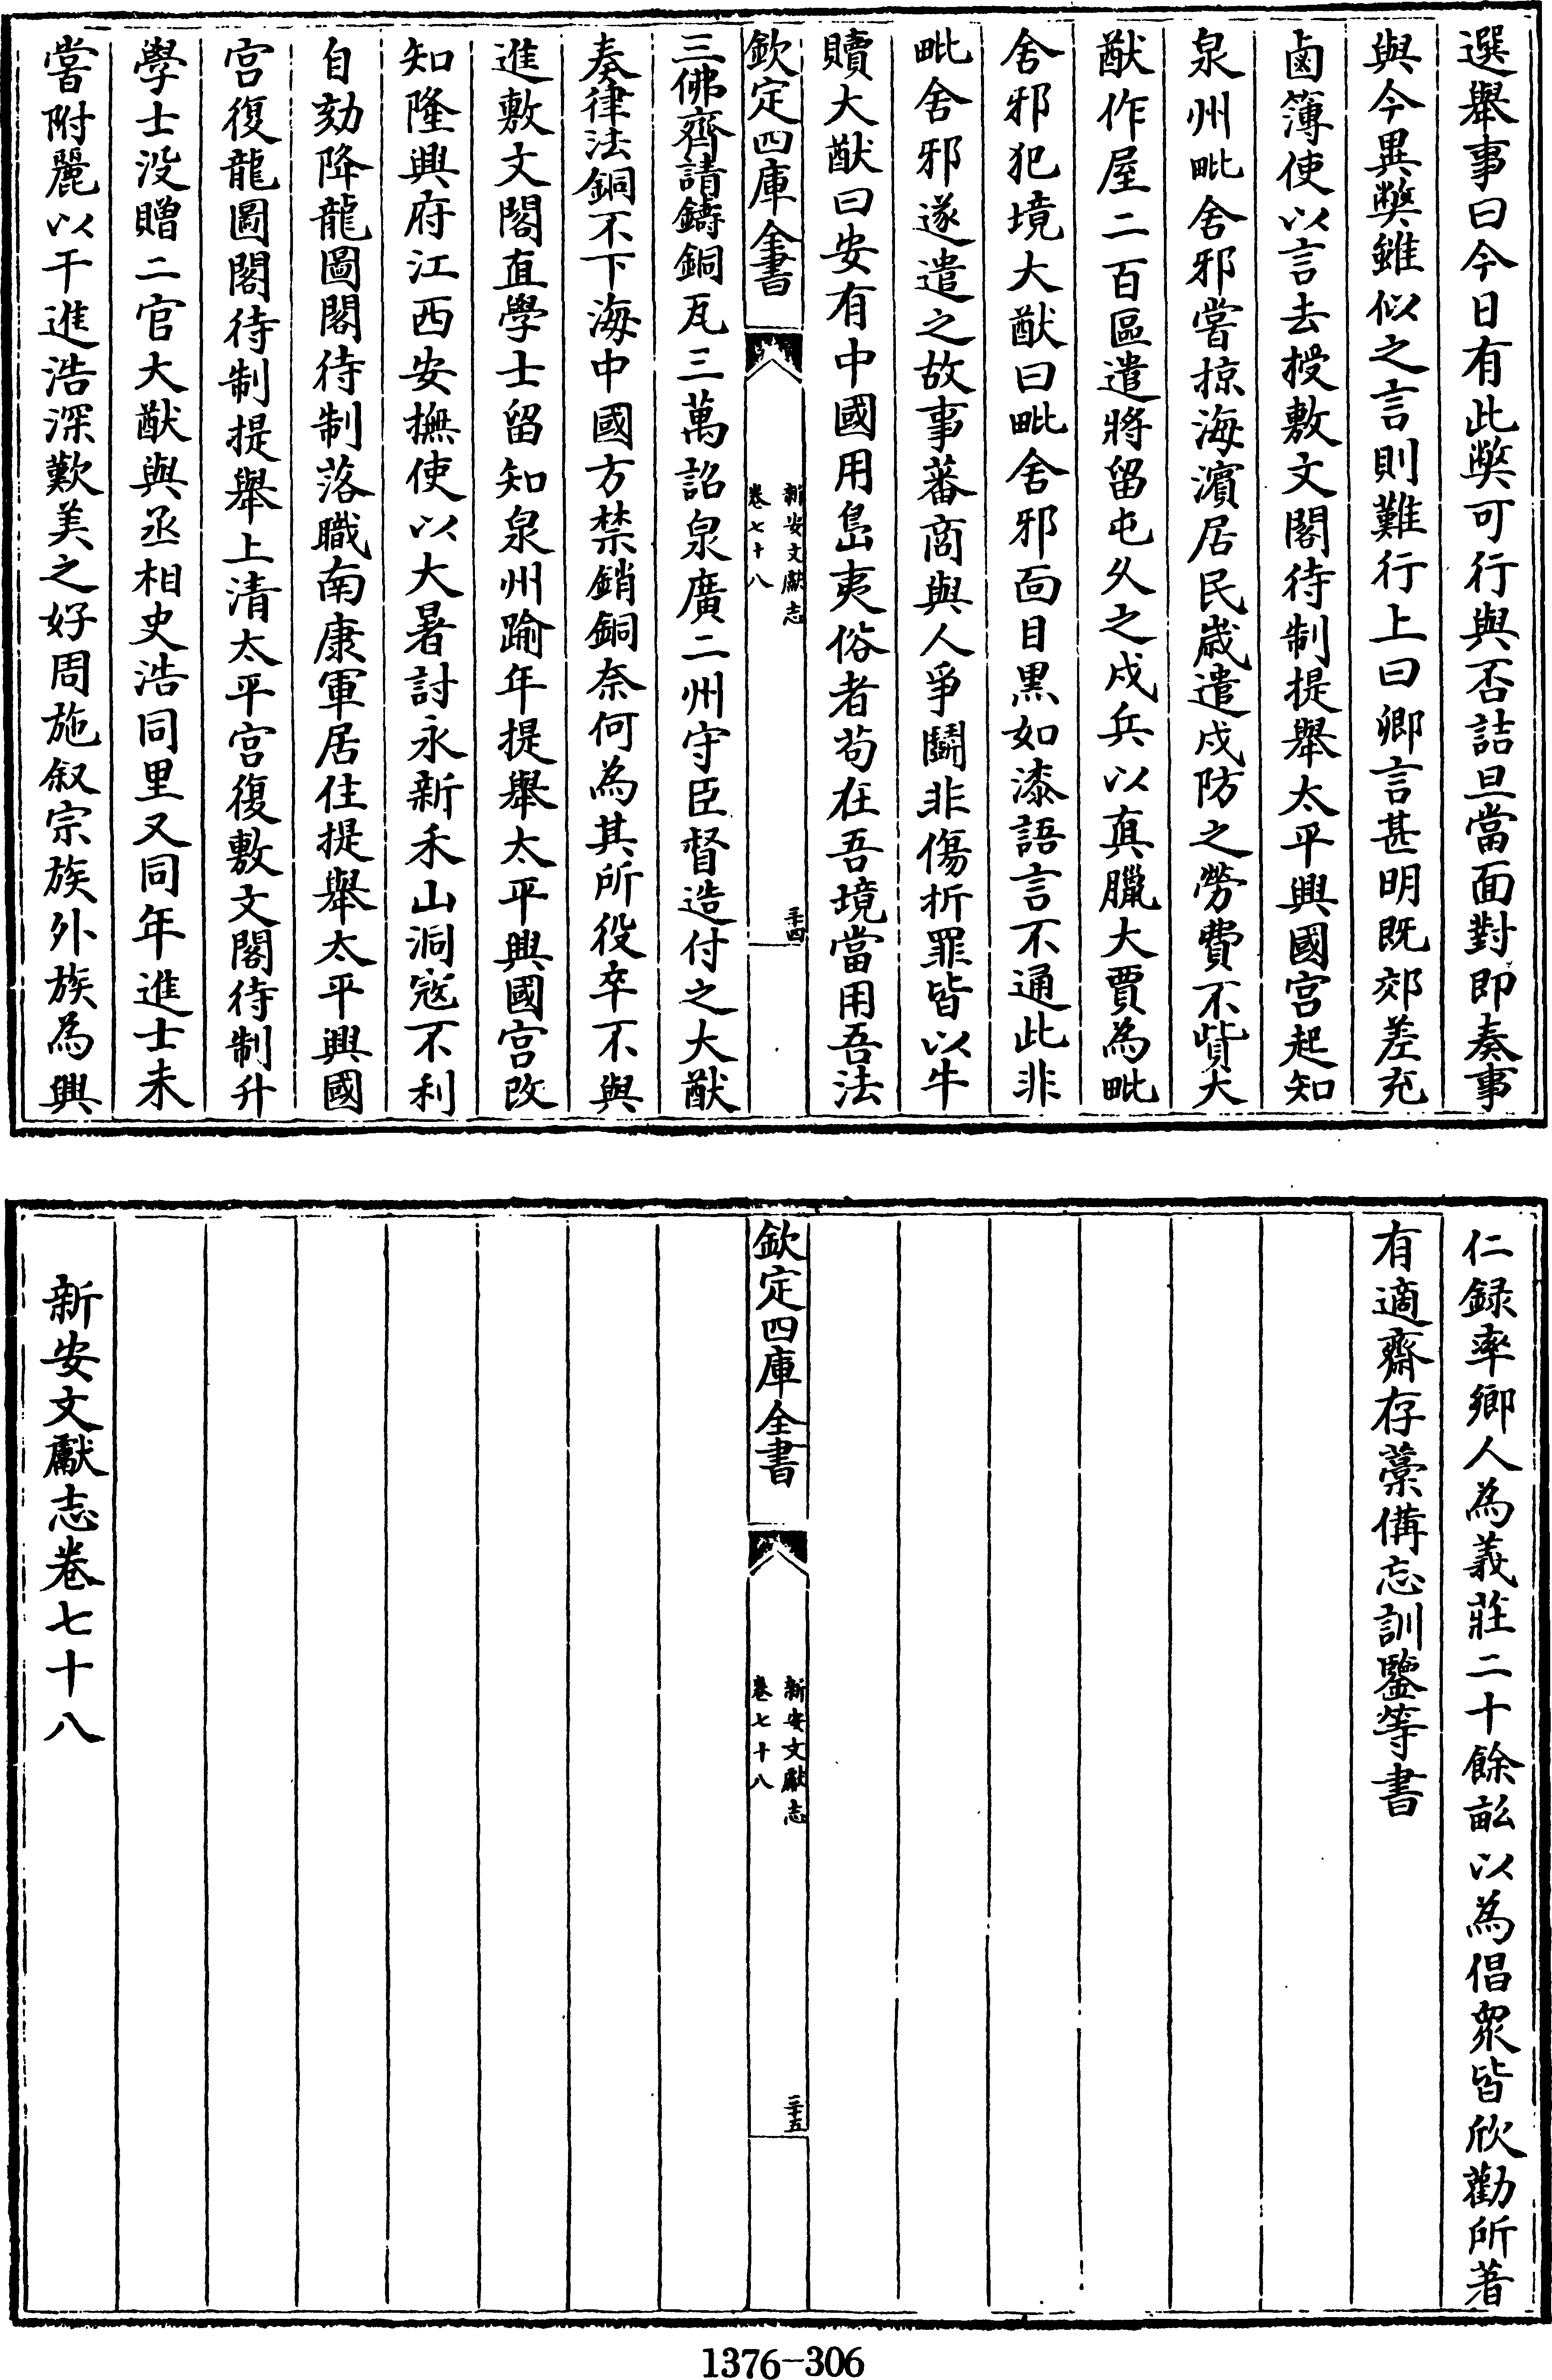 選舉事曰今日有此弊可行與否詰旦當面對即奏事
與今異弊雖似之言則難行上曰卿言甚明既郊差充
鹵簿使以言去授敷文閣待制提舉太平興國宫起知
泉州毗舍邪嘗掠海濱居民歳遣戍防之勞費不貲大
猷作屋二百區遣將留屯久之戍兵以真臘大賈為毗
舍邪犯境大猷曰毗舍邪面目黒如漆語言不通此非
毗舍邪遂遣之故事蕃商與人爭鬬非傷折罪皆以牛
贖大猷曰安有中國用島夷俗者茍在吾境當用吾法
欽定四庫全書
新安文獻志
卷七十八
三十四
三佛齊請鑄銅瓦三萬詔泉廣二州守臣督造付之大猷
奏律法銅不下海中國方禁銷銅奈何為其所役卒不與
進敷文閣直學士留知泉州踰年提舉太平興國宫改
知隆興府江西安撫使以大暑討永新禾山洞宼不利
自劾降龍圖閣待制落職南康軍居住提舉太平興國
宫復龍圖閣待制提舉上清太平宫復敷文閣待制升
學士没贈二官大猷與丞相史浩同里又同年進士未
嘗附麗以干進浩深歎美之好周施叙宗族外族為興
仁録率鄉人為義莊二十餘畆以為倡衆皆欣勸所著
有適齋存藁備忘訓鑒等書
欽定四庫全書
新安文獻志
卷七十八
三十五
新安文獻志卷七十八
1376-306